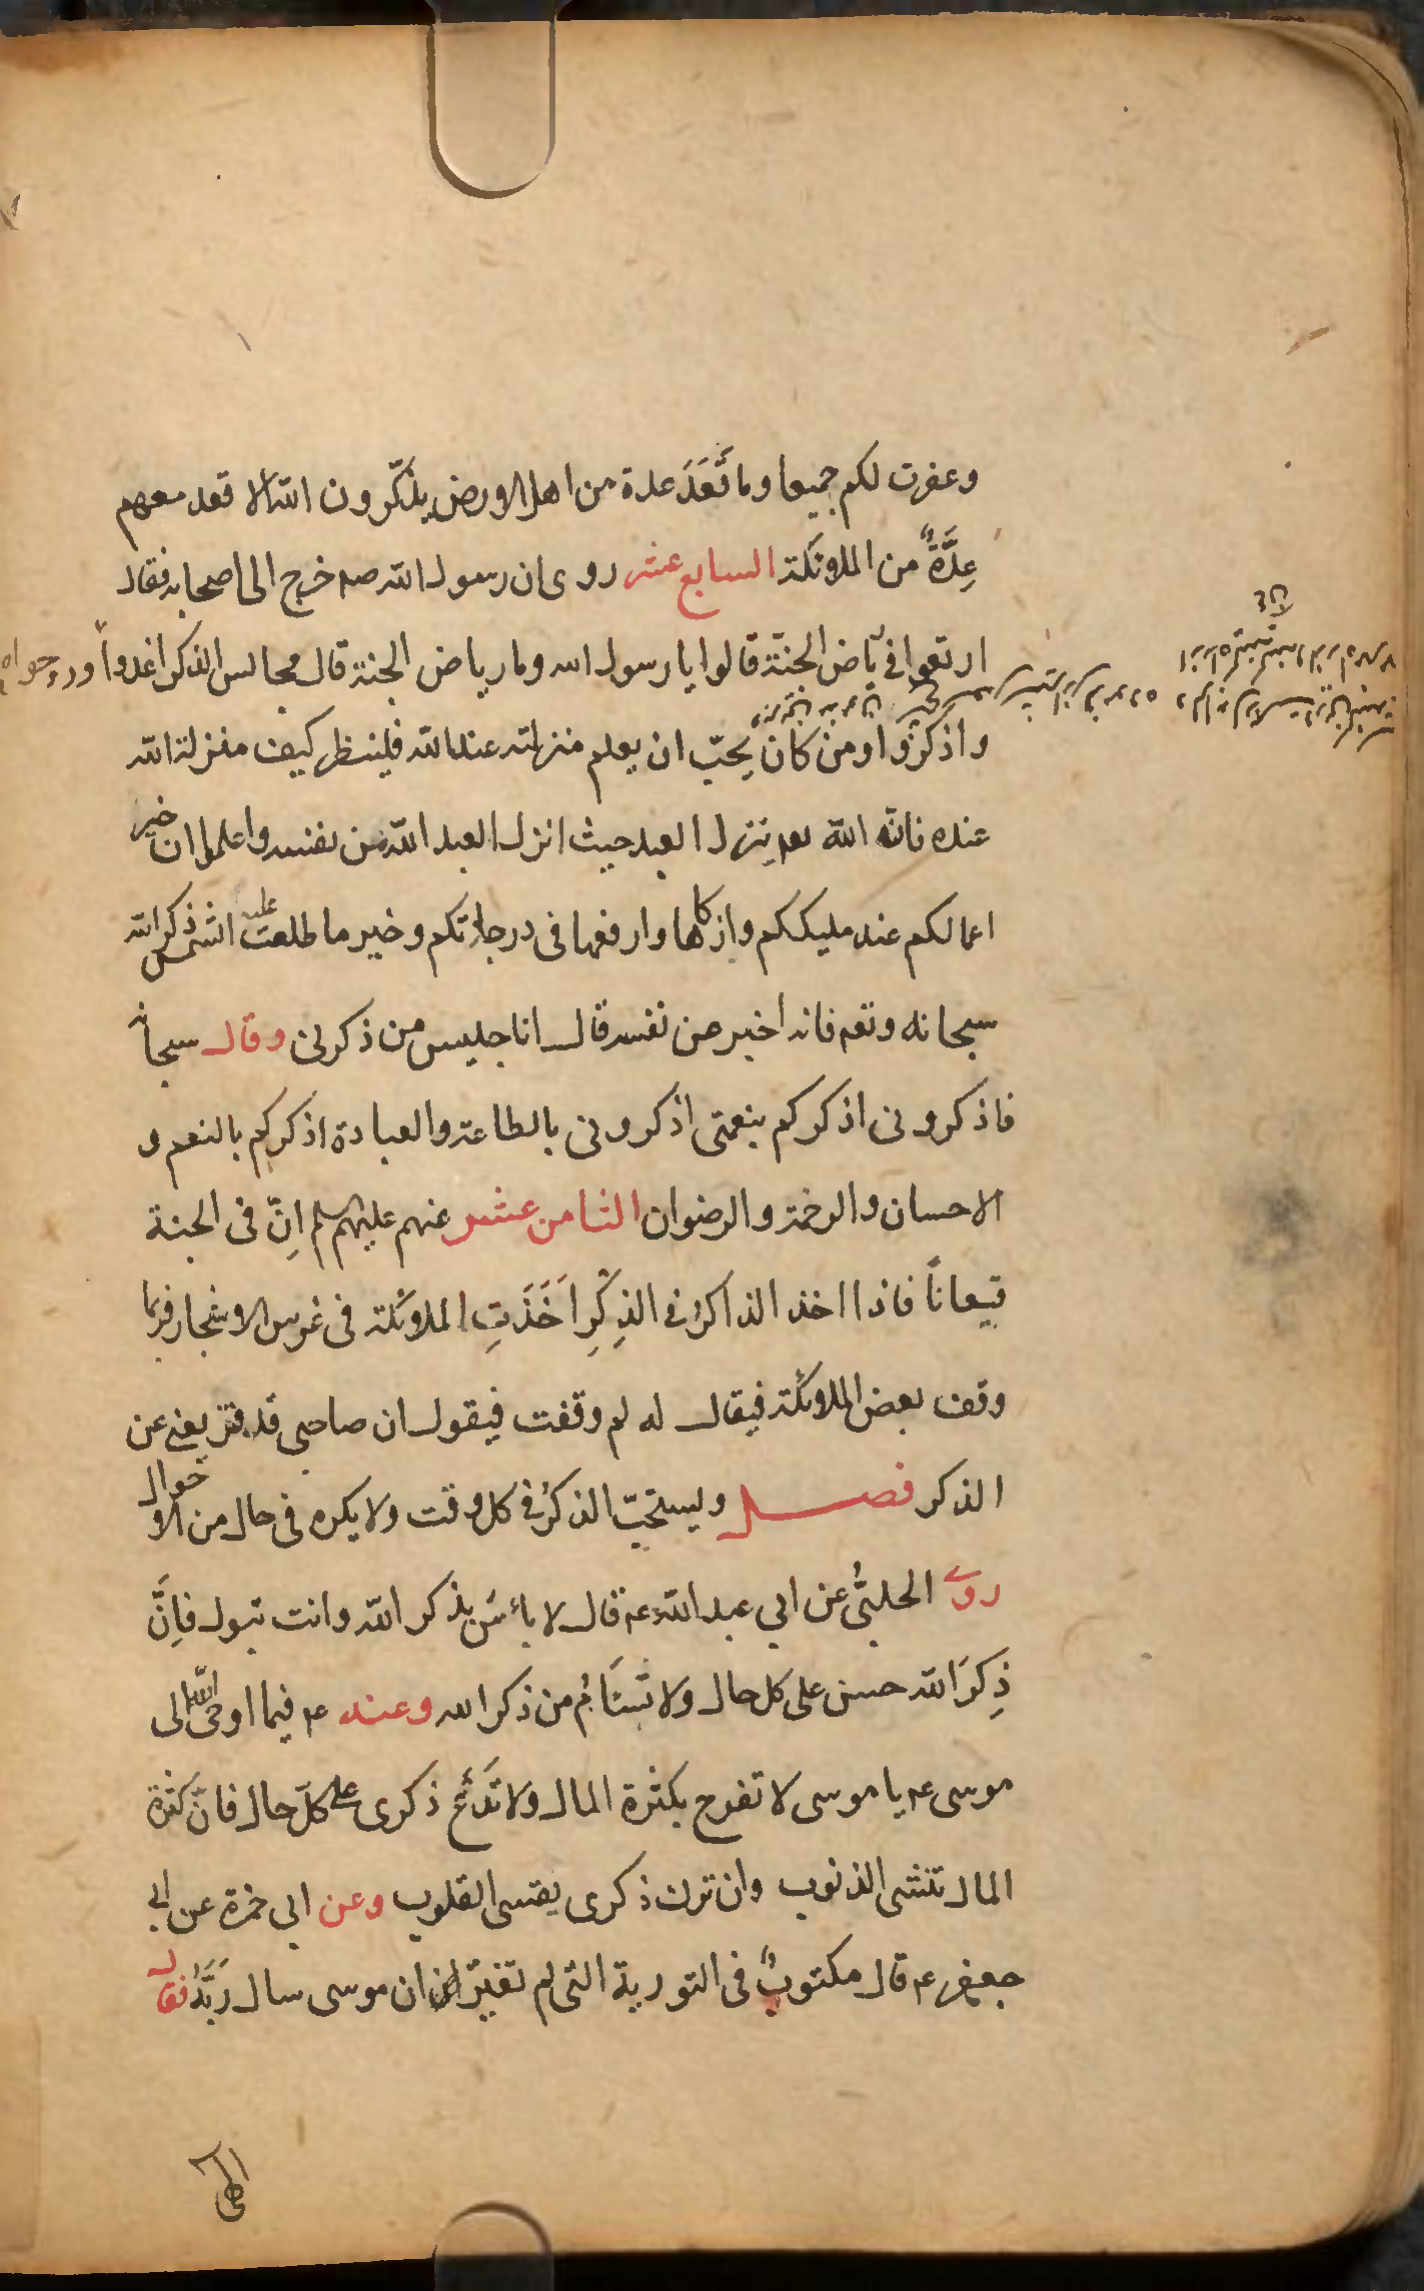 وغفرت لكم جميعا وما قَعَدَ عدة من اهل الارض يذكّرون اللّه الا قعد معهم
عِدَّةٌ من الملائكة السابع عشر روى ان رسول اللّه صم خرج الى اصحابه فقال
ارتعوا فى رياض الجنّة قالوا يا رسول الله وما رياض الجنة قال مجالس الذكر اغدوا وروحوا
واذكروا ومن كان يحبّ ان يعلم منزلته عند اللّه فلينظر كيف منزلة اللّه
عنده فانّه اللّه تعم ينزل العبد حيث انزل العبد اللّه من نفسه واعلموا ان خير
اعمالكم عند مليككم وازكاها وارفعها فى درجاتكم وخير ما طلعت عليه الشمس ذكر اللّه
سبحانه وتعم فانه اخبر عن نفسه قال انا جليس من ذكرنى وقال سبحانه
فاذكرونى اذكركم بنعمتى اذكرونى بالطاعة والعبادة اذكركم بالنعم و
الاحسان والرحمة والرضوان الثامن عشر عنهم عليهم سلم اِنّ فى الجنة
قيعاناً فاذا اخذ الذاكرُ فى الذِكْرِ اَخَذَتِ الملائكة فى غرس الاشجار فربما
وقف بعض الملائكة فيقال له لم وقفت فيقول ان صاحبى قد فتر يعنى عن
الذكر فصل ويستحبّ الذكرُ فى كل وقت ولا يكره فى حال من الاحوال
روى الحلبىُّ عن ابي عبد اللّه عم قال لا بأس بذكر اللّه وانت تبول فاِنَّ
ذِكرَ اللّه حسن على كل حال ولا تَسْأَمْ من ذكر الله وعنه عم فيما اوحى اللّه الى
موسى عم يا موسى لا تفرح بكثرة المال ولا تَدَعْ ذكرى على كلّ حال فانّ كثرة
المال تنسى الذنوب وان ترك ذكرى يقسى القلوب وعن ابى حمزة عن ابى
جعفر عم قال مكتوبٌ فى التورية التى لم تغيّر ان موسى سال رَبَّهُ فقال